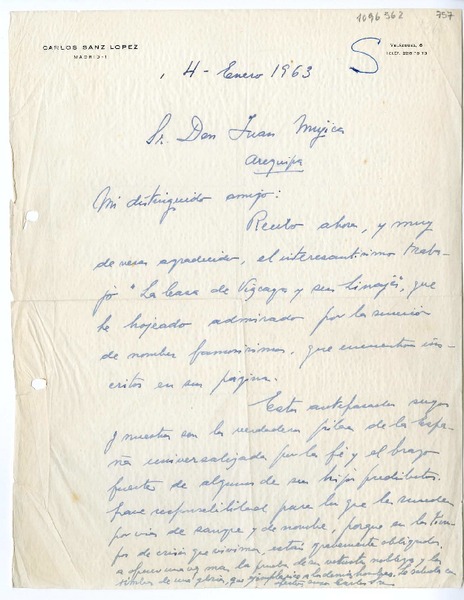 1096562 757
CARLOS SANZ LOPEZ
MADRID-1
S
VELAZQUEZ, 6
4 - Enero 1963
Sr. Don Juan Mujica
Arequipa
Mi distinguido amigo:
Recibo ahora, y muy
de veras agradecido, el interesantísimo traba-
jo "La Casa de Vizcaya y sus linajes", que
he hojeado admirado por la
de nombres famosísimos, que encuentro ins-
critos en sus páginas.
Estos antepasados suyos
y nuestros son los verdaderos pilares de la Espa-
ña universalizada por la fé y el brazo
fuerte de algunos de sus hijos predilectos.
Grave responsabilidad para los que
por vías de sangre y de nombre, porque en los tiem-
pos de crisis que vivimos, están gravemente obligados
a ofrecer una vez mas la prueba de su nobleza y los
timbres de una gloria, que a los demás hombres. Le saluda con
afecto Carlos Sanz